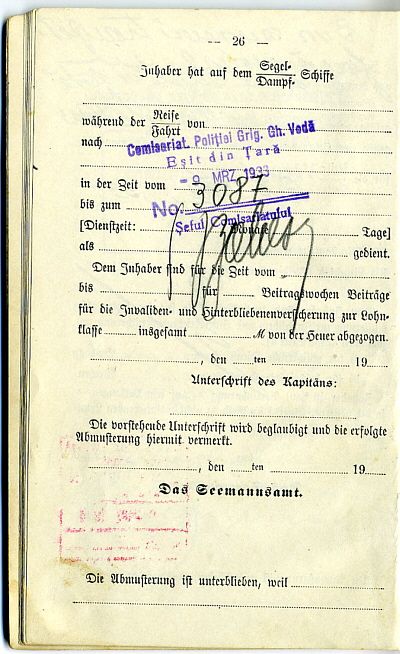 — 26 —
Inhaber hat auf dem Segel- Schiffe
Dampf-
während der Reise von
Fahrt
nach
Comisariat. Poliției Grig. Gh. Vodă
Eșit din Țară
- 9 MRZ. 1933
in der Zeit vom
No. 3087
bis zum
Șeful Comisariatului
[Dienstzeit: Monate Tage]
als gedient.
Dem Inhaber sind für die Zeit vom
bis für Beitragswochen Beiträge
für die Invaliden- und Hinterbliebenenversicherung zur Lohn-
klasse insgesamt M von der Heuer abgezogen.
, den ten 19
Unterschrift des Kapitäns:
Die vorstehende Unterschrift wird beglaubigt und die erfolgte
Abmusterung hiermit vermerkt.
, den ten 19
Das Seemannsamt.
Die Abmusterung ist unterblieben, weil